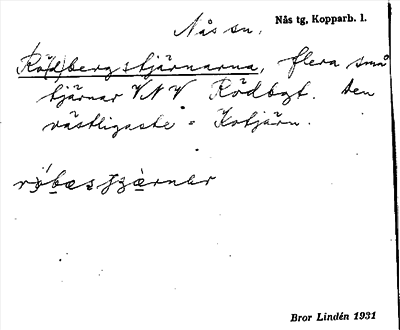 Nås sn. Nås tg, Kopparb. l.
Rö(d)bergstjärnarna, flera små
tjärnar VNV Rödbgt. Den
västligaste = Kotjärn.
Bror Lindén 1931